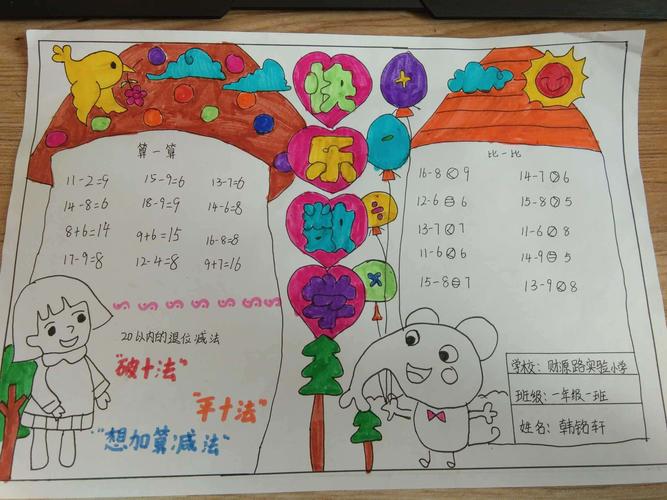 快乐数学
+
-
÷
×
算一算
11-2=9 15-9=6 13-7=6
14-8=6 18-9=9 14-6=8
8+6=14 9+6=15 16-8=8
17-9=8 12-4=8 9+7=16
20以内的退位减法
"破十法"
"平十法"
"想加算减法"
比一比
16-8<9 14-7>6
12-6=6 15-8>5
13-7<7 11-6<8
11-6<6 14-9=5
15-8=7 13-9<8
学校:财源路实验小学
班级:一年级一班
姓名:韩铭轩